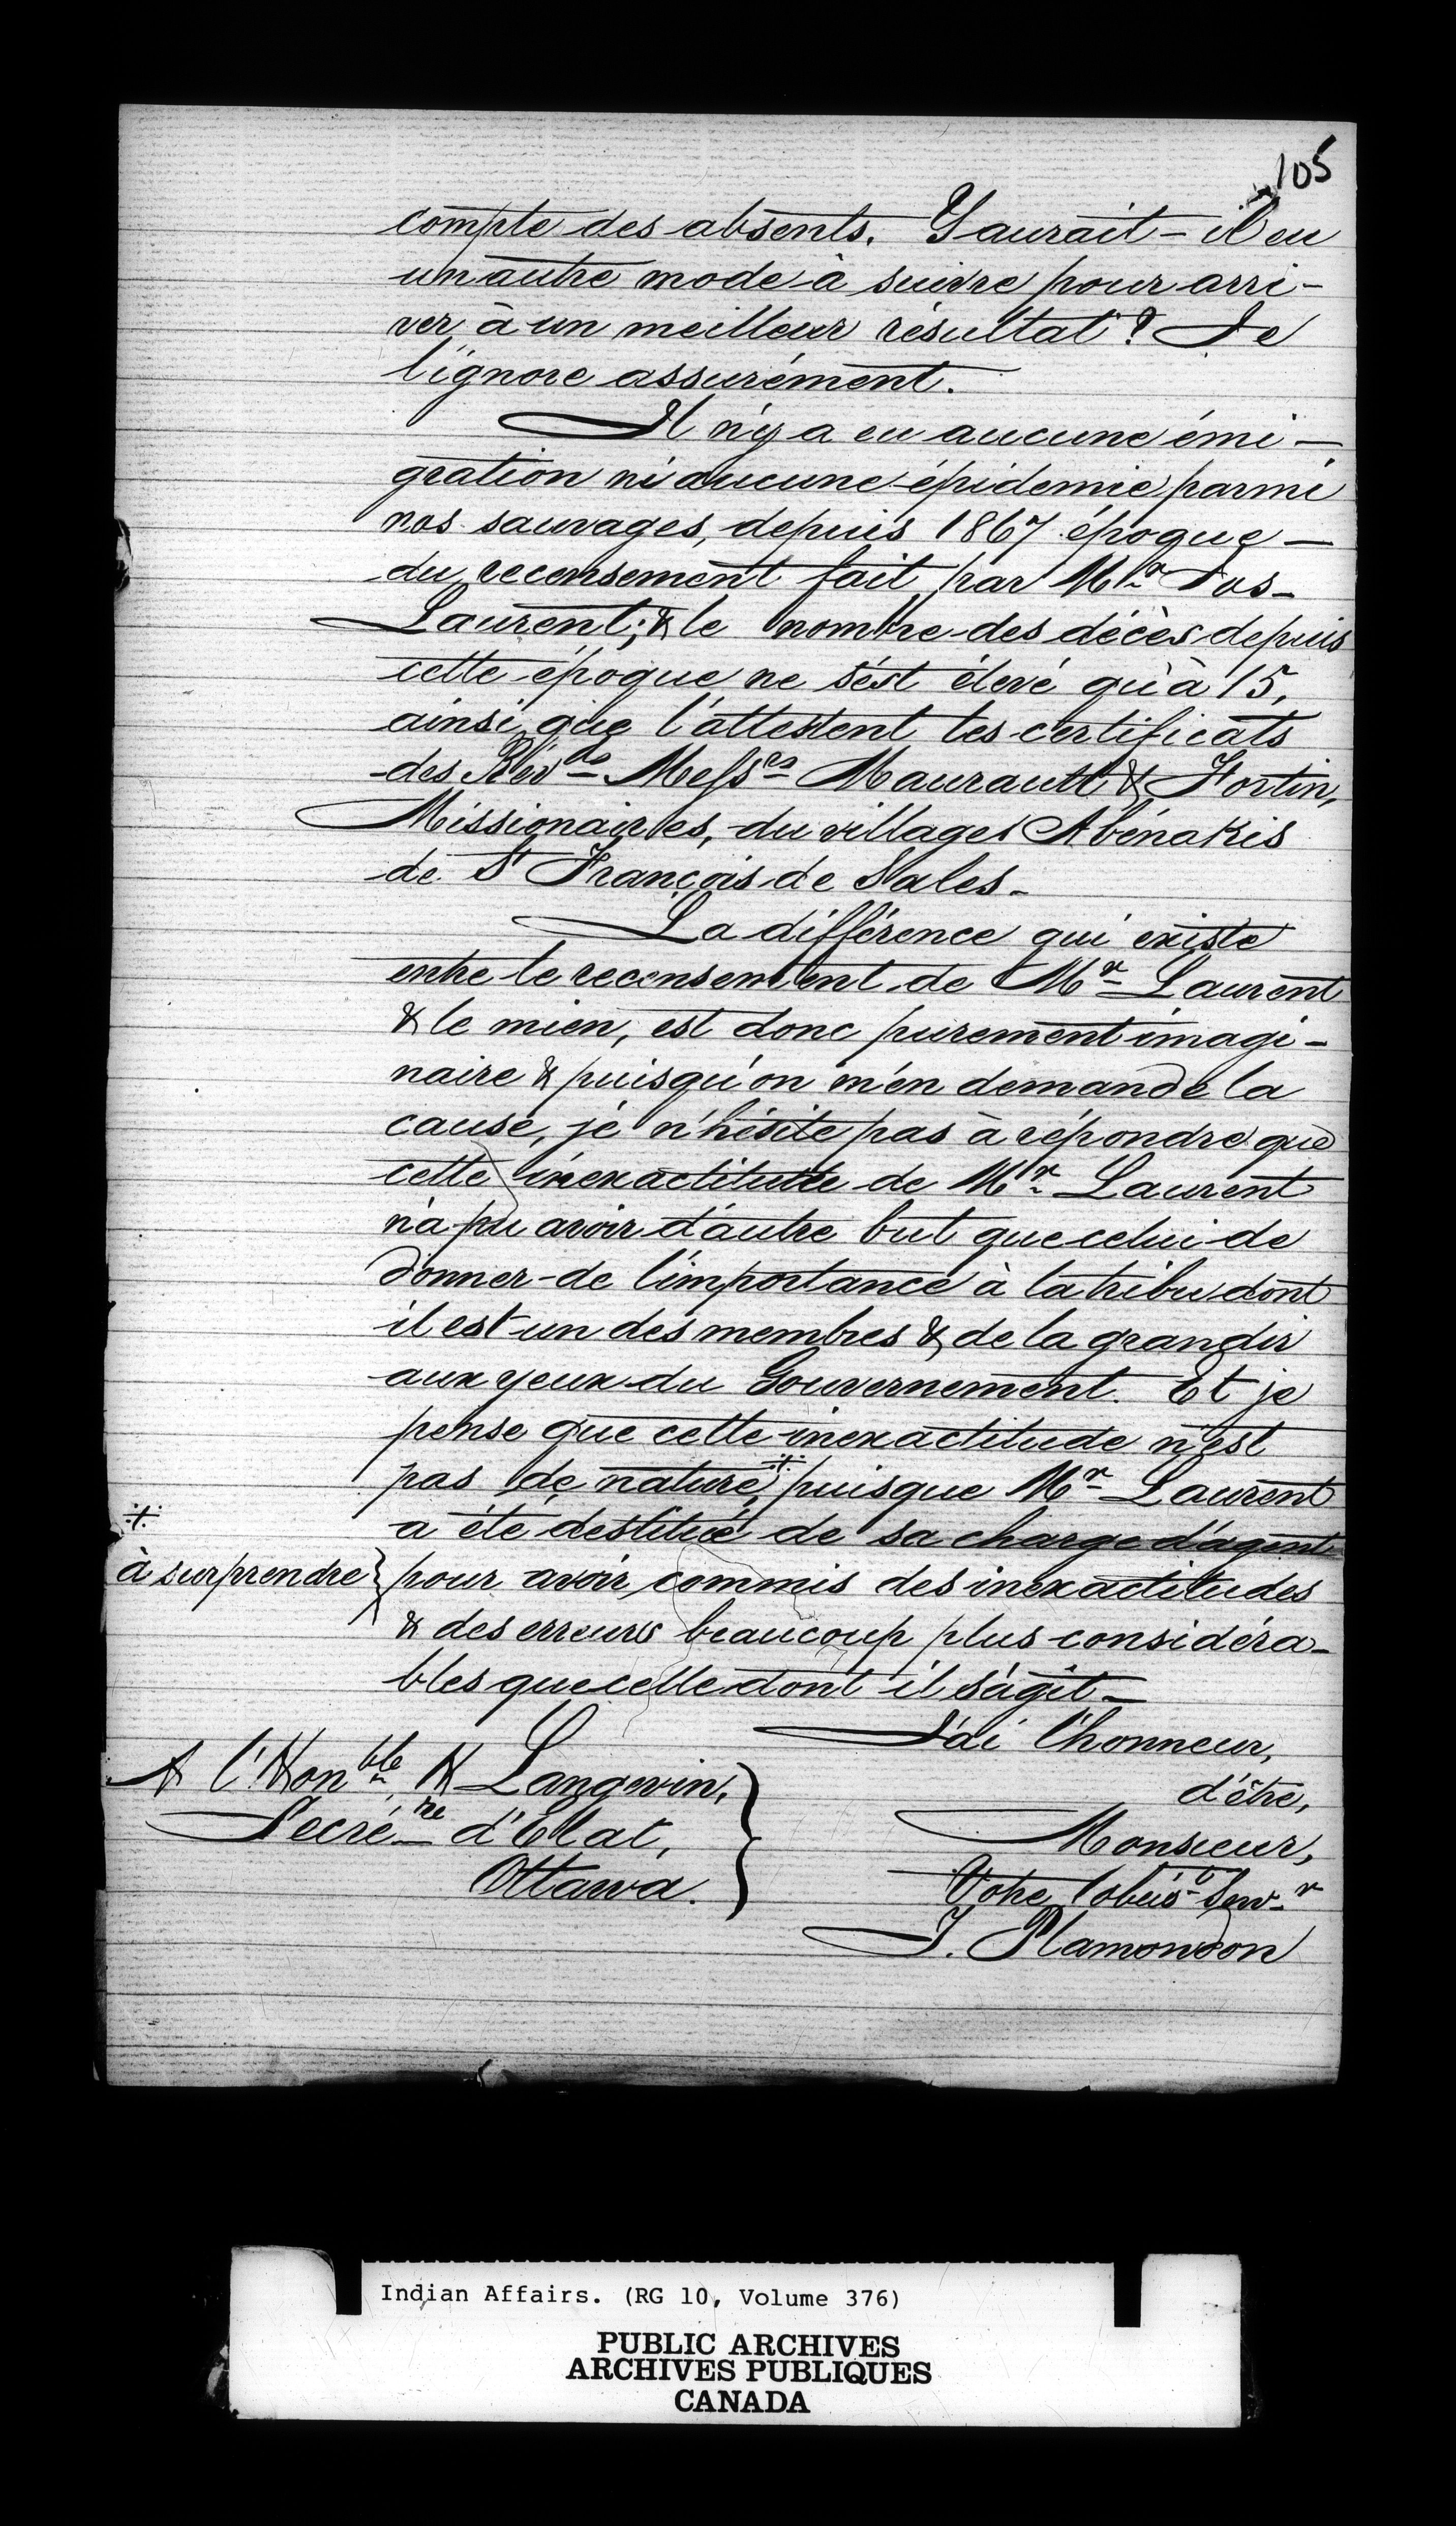 105
compte des absents. Y aurait-il eu
un autre mode à suivre pour arri-
ver à un meilleur résultat? Je
l'ignore assurément.
Il n'y a eu aucune émi-
gration ni aucune épidemie parmi
nos sauvages, depuis 1867 époque
du recensement fait par Mr Jos-
Laurent; & le nombre des décès depuis
cette époque ne s'est élevé qu'à 15,
ainsi que l'attestent les certificats
des Révds Messrs Maurault & Fortin,
Missionaires, du village Abénakis
de St François de Sales-
La différence qui existe
entre le recensement de Mr Laurent
& le mien, est donc purement imagi-
naire & puisqu'on m'en demande la
cause, je n'hésite pas à répondre que
cette inexactitude de Mr Laurent
n'a pu avoir d'autre but que celui de
donner de l'importance à la tribu dont
il est un des membres & de la grandir
aux yeux du Gouvernement. Et je
pense que cette inexactitude n'est
pas de nature, ⁜ puisque Mr Laurent
a été destitué de sa charge d'agent
⁜
à surprendre }
pour avoir commis des inexactitudes
& des erreurs beaucoup plus considéra-
bles que celle dont il s'agit-
J'ai l'honneur,
d'être,
Monsieur,
Votre obéis- Serv-r
J. Plamondon
A l'Honble H Langevin,
Secré-re d'Etat,
Ottawa.
Indian Affairs. (RG 10, Volume 376)
PUBLIC ARCHIVES
ARCHIVES PUBLIQUES
CANADA